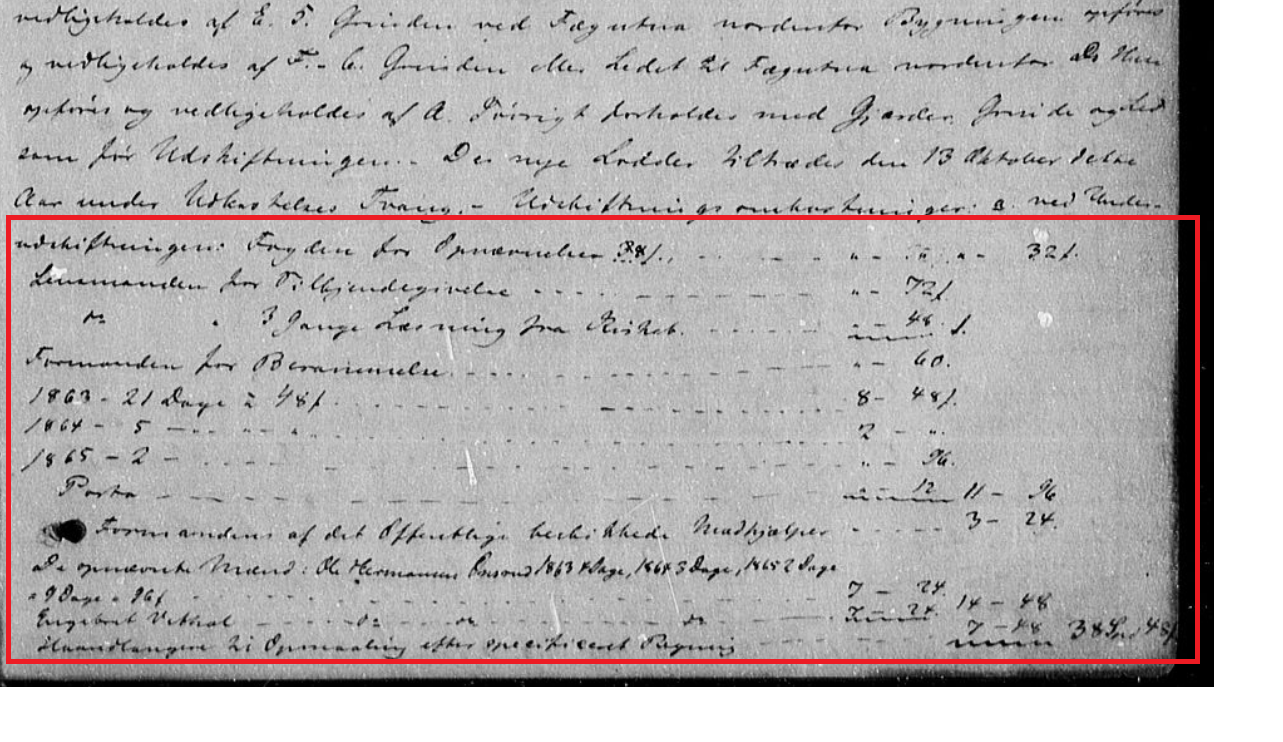 vedligeholdes af E. 5. Grinden ved Fægutua nordenfor Bygningen opføres
og vedligeholdes af F. - 6. Grinden eller Ledet til Fægutua nordenfor A's Huse
opføres og vedligeholdes af A. Iøvrigt forholdes med Gjærder, Grinde og Led
som før Udskiftningen. - De nye Lodder tiltrædes den 13 Oktober dette
Aar under Udkastelses Tvang. - Udskiftningsomkostninger: a. ved Under-
udskiftningen: Fogden for Opnævnelse 38/., - - - " - " " - 32/.
Lensmanden for Tilkjendegivelse - - - - " - 72/
do " 3 Gange Læsning fra - - - " - 48 /.
Formanden for Berammelse - - - - " - 60.
1863 - 21 Dage à 48/. - - - - 8 - 48/.
1864 - 5 - " - " - - - - 2 - ".
1865 - 2 - - - - - " - 96.
Porto - - - - - 12 11 - 96
Formandens af det Offentlige beskikkede Medhjælper - - - - 3 - 24.
De opnævnte Mænd: Ole Hermansen 1863 4 Dage, 1864 3 Dage, 1865 2 Dage
= 9 Dage à 96/ - - - - 7 - 24.
Engebret - do - do - do - 7 - 24. 14 - 48
Haandlangere til Opmaaling efter specificeret Regning - - - 7 - 48 38 Spd 48/